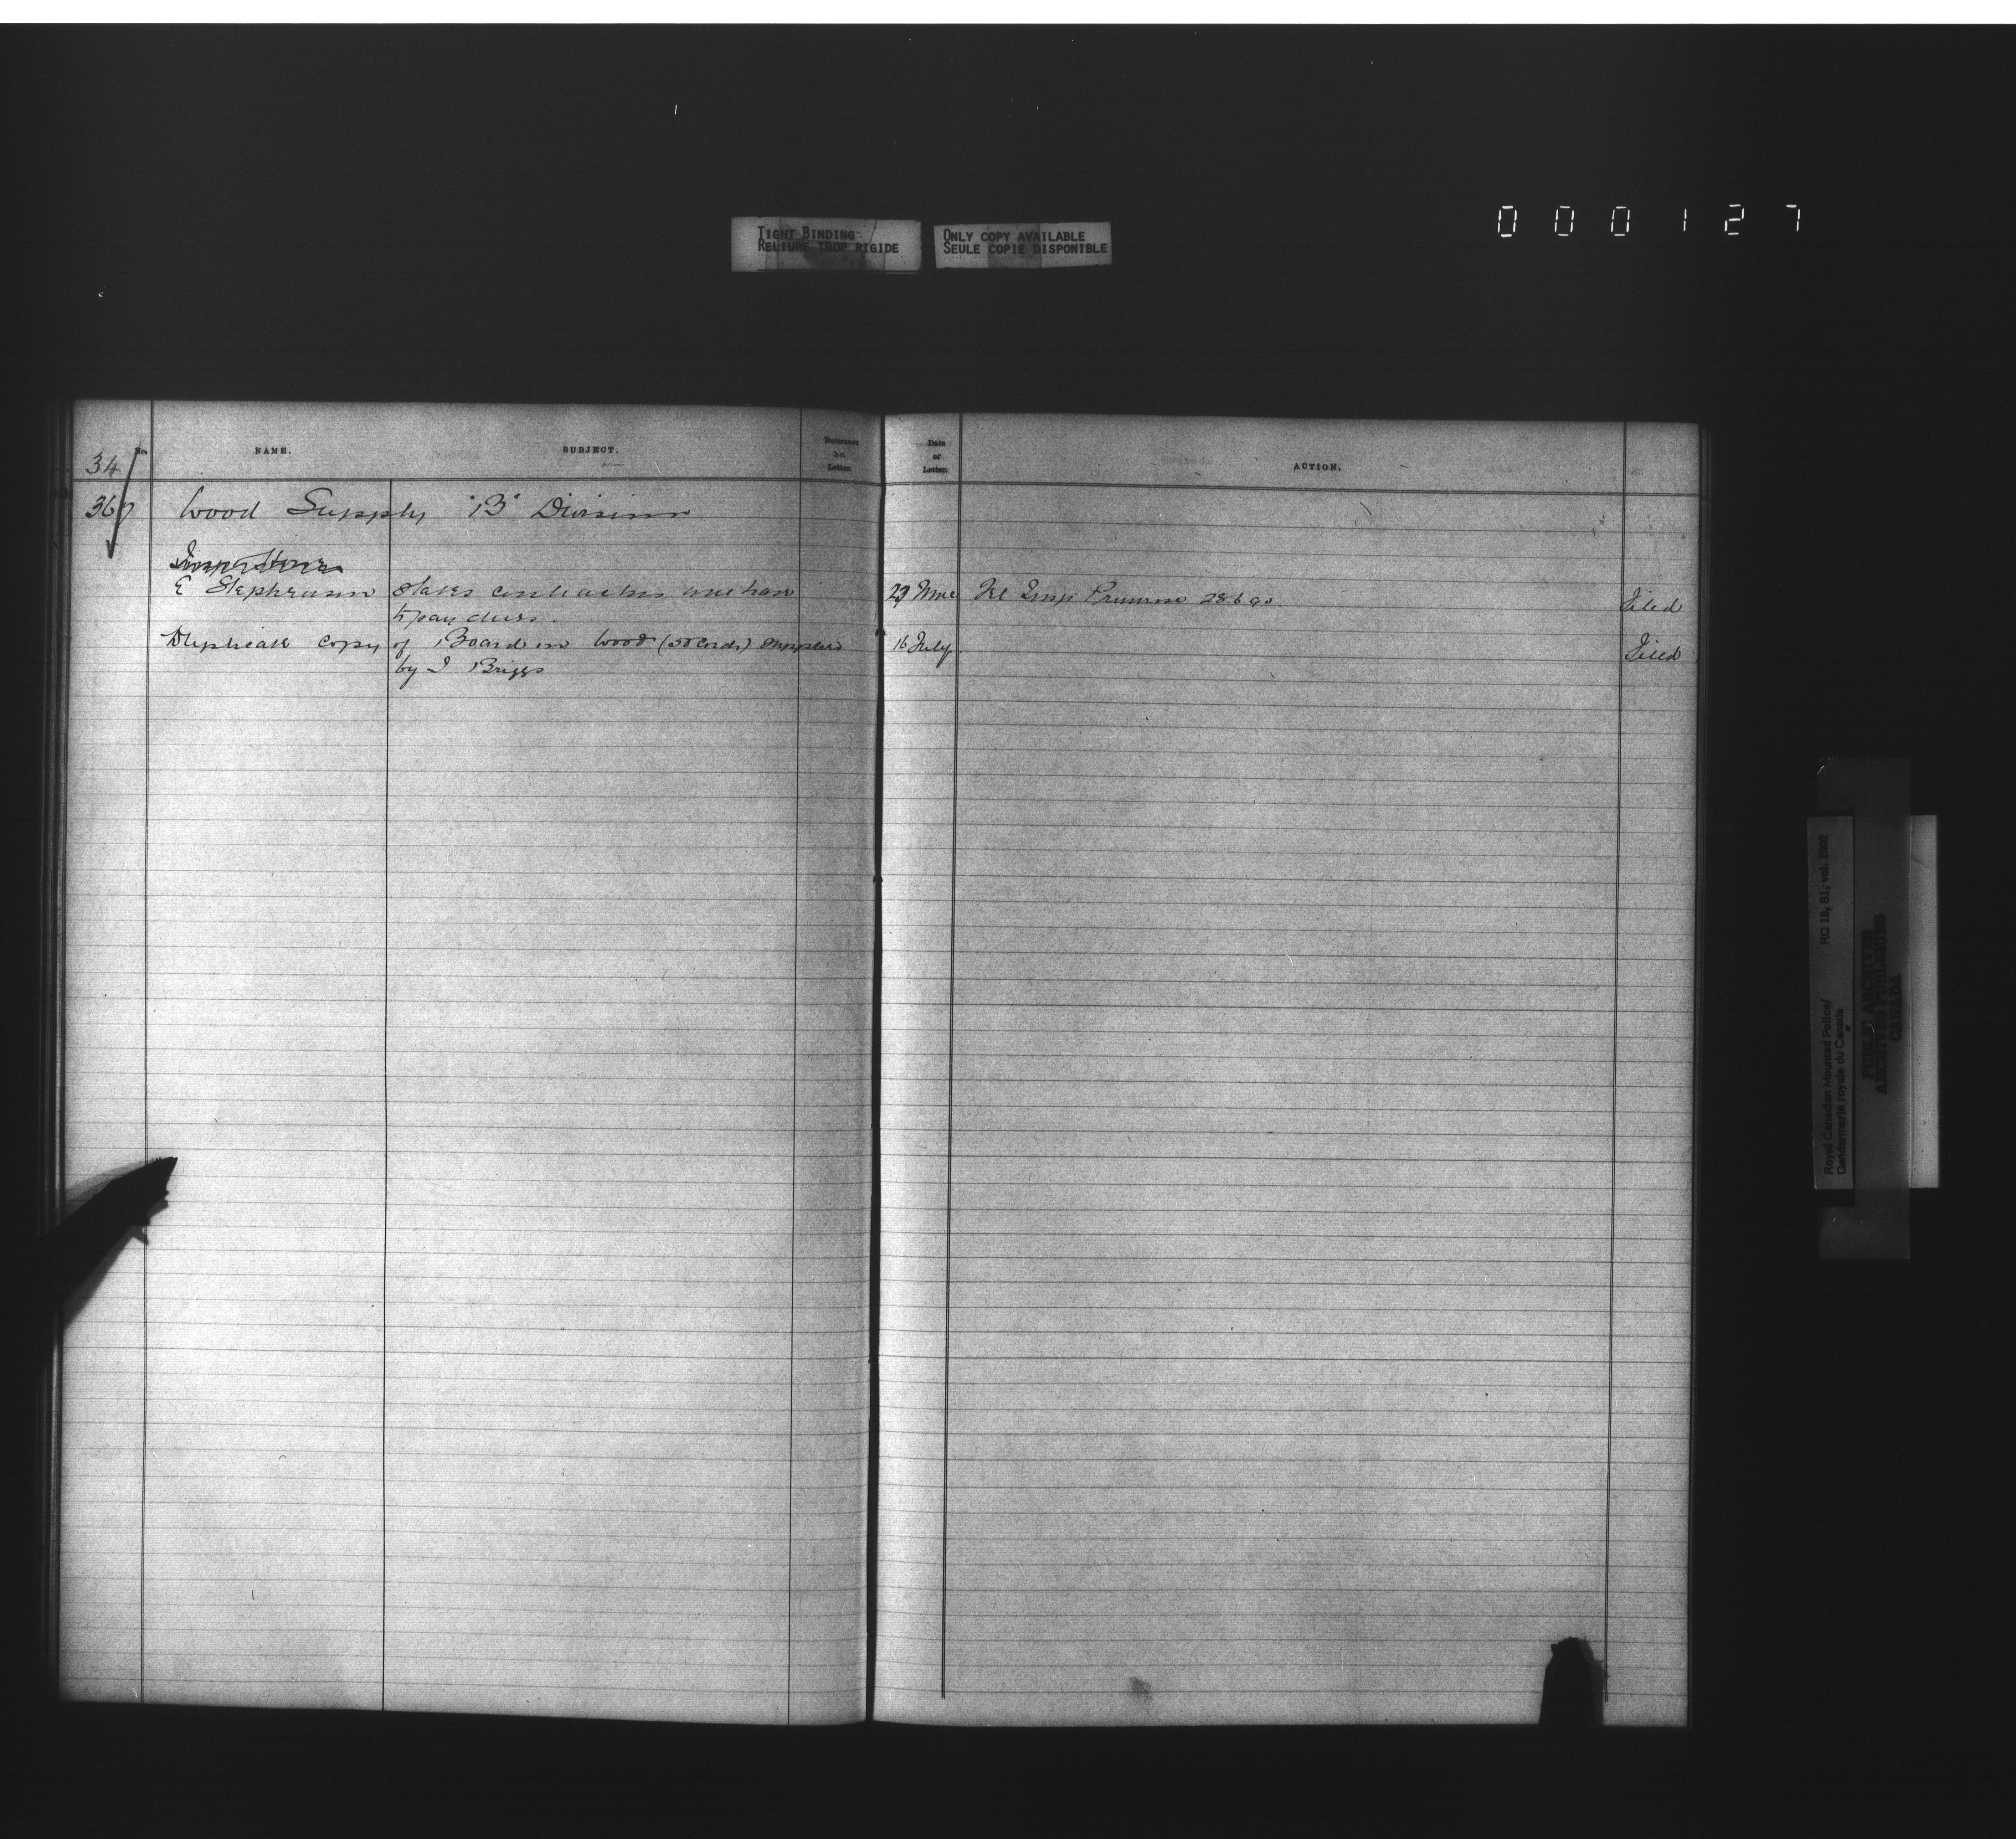 TIGHT BINDING
RELIURE TROP RIGIDE
ONLY COPY AVAILABLE
SEULE COPIE DISPONIBLE
0 0 0 1 2 7
No.
NAME.
SUBJECT.
Reference
No.
Letter.
Date
of
Letter.
ACTION.
34
Wood Supply "B" Division
E Stephenson States contractors will have
to pay dues.
Tel Insp Primrose 28.6.90.
Filed
Duplicate copy of Board on Wood (50 Cords) supplied
by I Briggs
16 July
Filed
Royal Canadian Mounted Police/
Gendarmerie royale du Canada
RG 18, B1, vol. 2002
PUBLIC ARCHIVES
ARCHIVES PUBLIQUES
CANADA